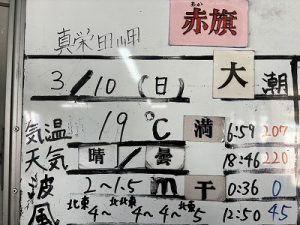 赤旗
真栄田岬
3/10(日) 大潮
気温 19℃ 満 6:59 207
天気 晴/曇 18:46 220
波 2~1.5m 干 0:36 0
風 北東4~ 北北東4~4~ 北東5 12:50 45